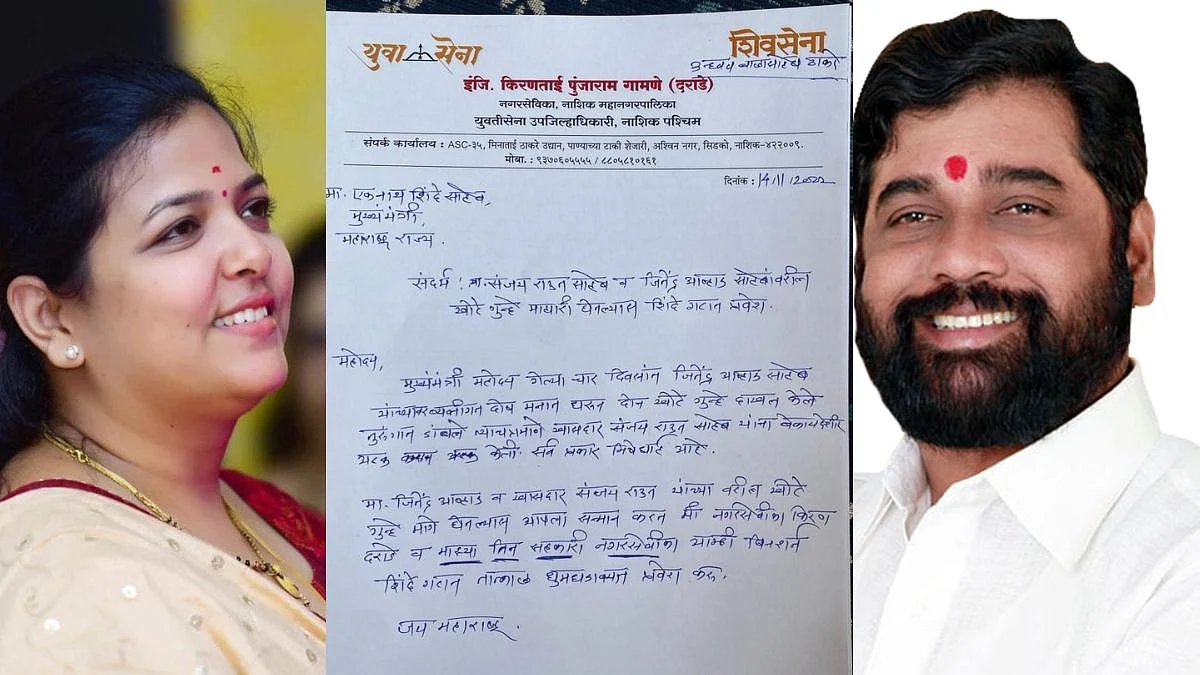 युवा सेना
शिवसेना
उध्दव बाळासाहेब ठाकरे
इंजि. किरणताई पुंजाराम गामणे (दराडे)
नगरसेविका, नाशिक महानगरपालिका
युवतीसेना उपजिल्हाधिकारी, नाशिक पश्चिम
संपर्क कार्यालय : ASC-३५, मिनाताई ठाकरे उद्यान, पाण्याच्या टाकी शेजारी, अश्विन नगर, सिडको, नाशिक-४२२००९.
मोबा. : ९३७०६०५५५५ / ८८०५८१०१६१
दिनांक : 14/11/2022
मा. एकनाथ शिंदे साहेब,
मुख्यमंत्री,
महाराष्ट्र राज्य.
संदर्भ : मा. संजय राऊत साहेब व जितेंद्र आव्हाड साहेबांवरील
खोटे गुन्हे माघारी घेतल्यास शिंदे गटात प्रवेश.
महोदय,
मुख्यमंत्री महोदय गेल्या चार दिवसांत जितेंद्र आव्हाड साहेब
यांच्यावर व्यक्तीगत दोष मनात धरून दोन खोटे गुन्हे दाखल केले
तुरुंगात डांबले त्याचप्रमाणे खासदार संजय राऊत साहेब यांना बेकायदेशीर
अटक केली. सर्व प्रकार निषेधार्ह आहे.
मा. जितेंद्र आव्हाड व खासदार संजय राऊत यांच्या वरील खोटे
गुन्हे मागे घेतल्यास आपला सन्मान करत मी नगरसेवीका किरण
दराडे व माझ्या तिन सहकारी नगरसेवीका आम्ही विनाशर्त
शिंदे गटात तात्काळ धुमधडाक्यात प्रवेश करू.
जय महाराष्ट्र.